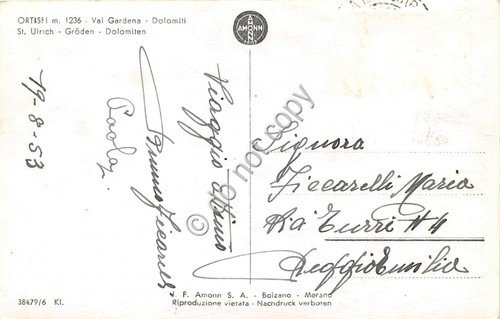 ORTISEI m. 1236 - Val Gardena - Dolomiti
St. Ulrich - Gröden - Dolomiten
AMONN
19-8-53
Viaggio ottimo
Paola
Signora
Ficcarelli Maria
Via Turri N 4
Reggio Emilia
© Do not copy
J. F. Amonn S. A. - Bolzano - Merano
Riproduzione vietata - Nachdruck verboten
38479/6 Kl.